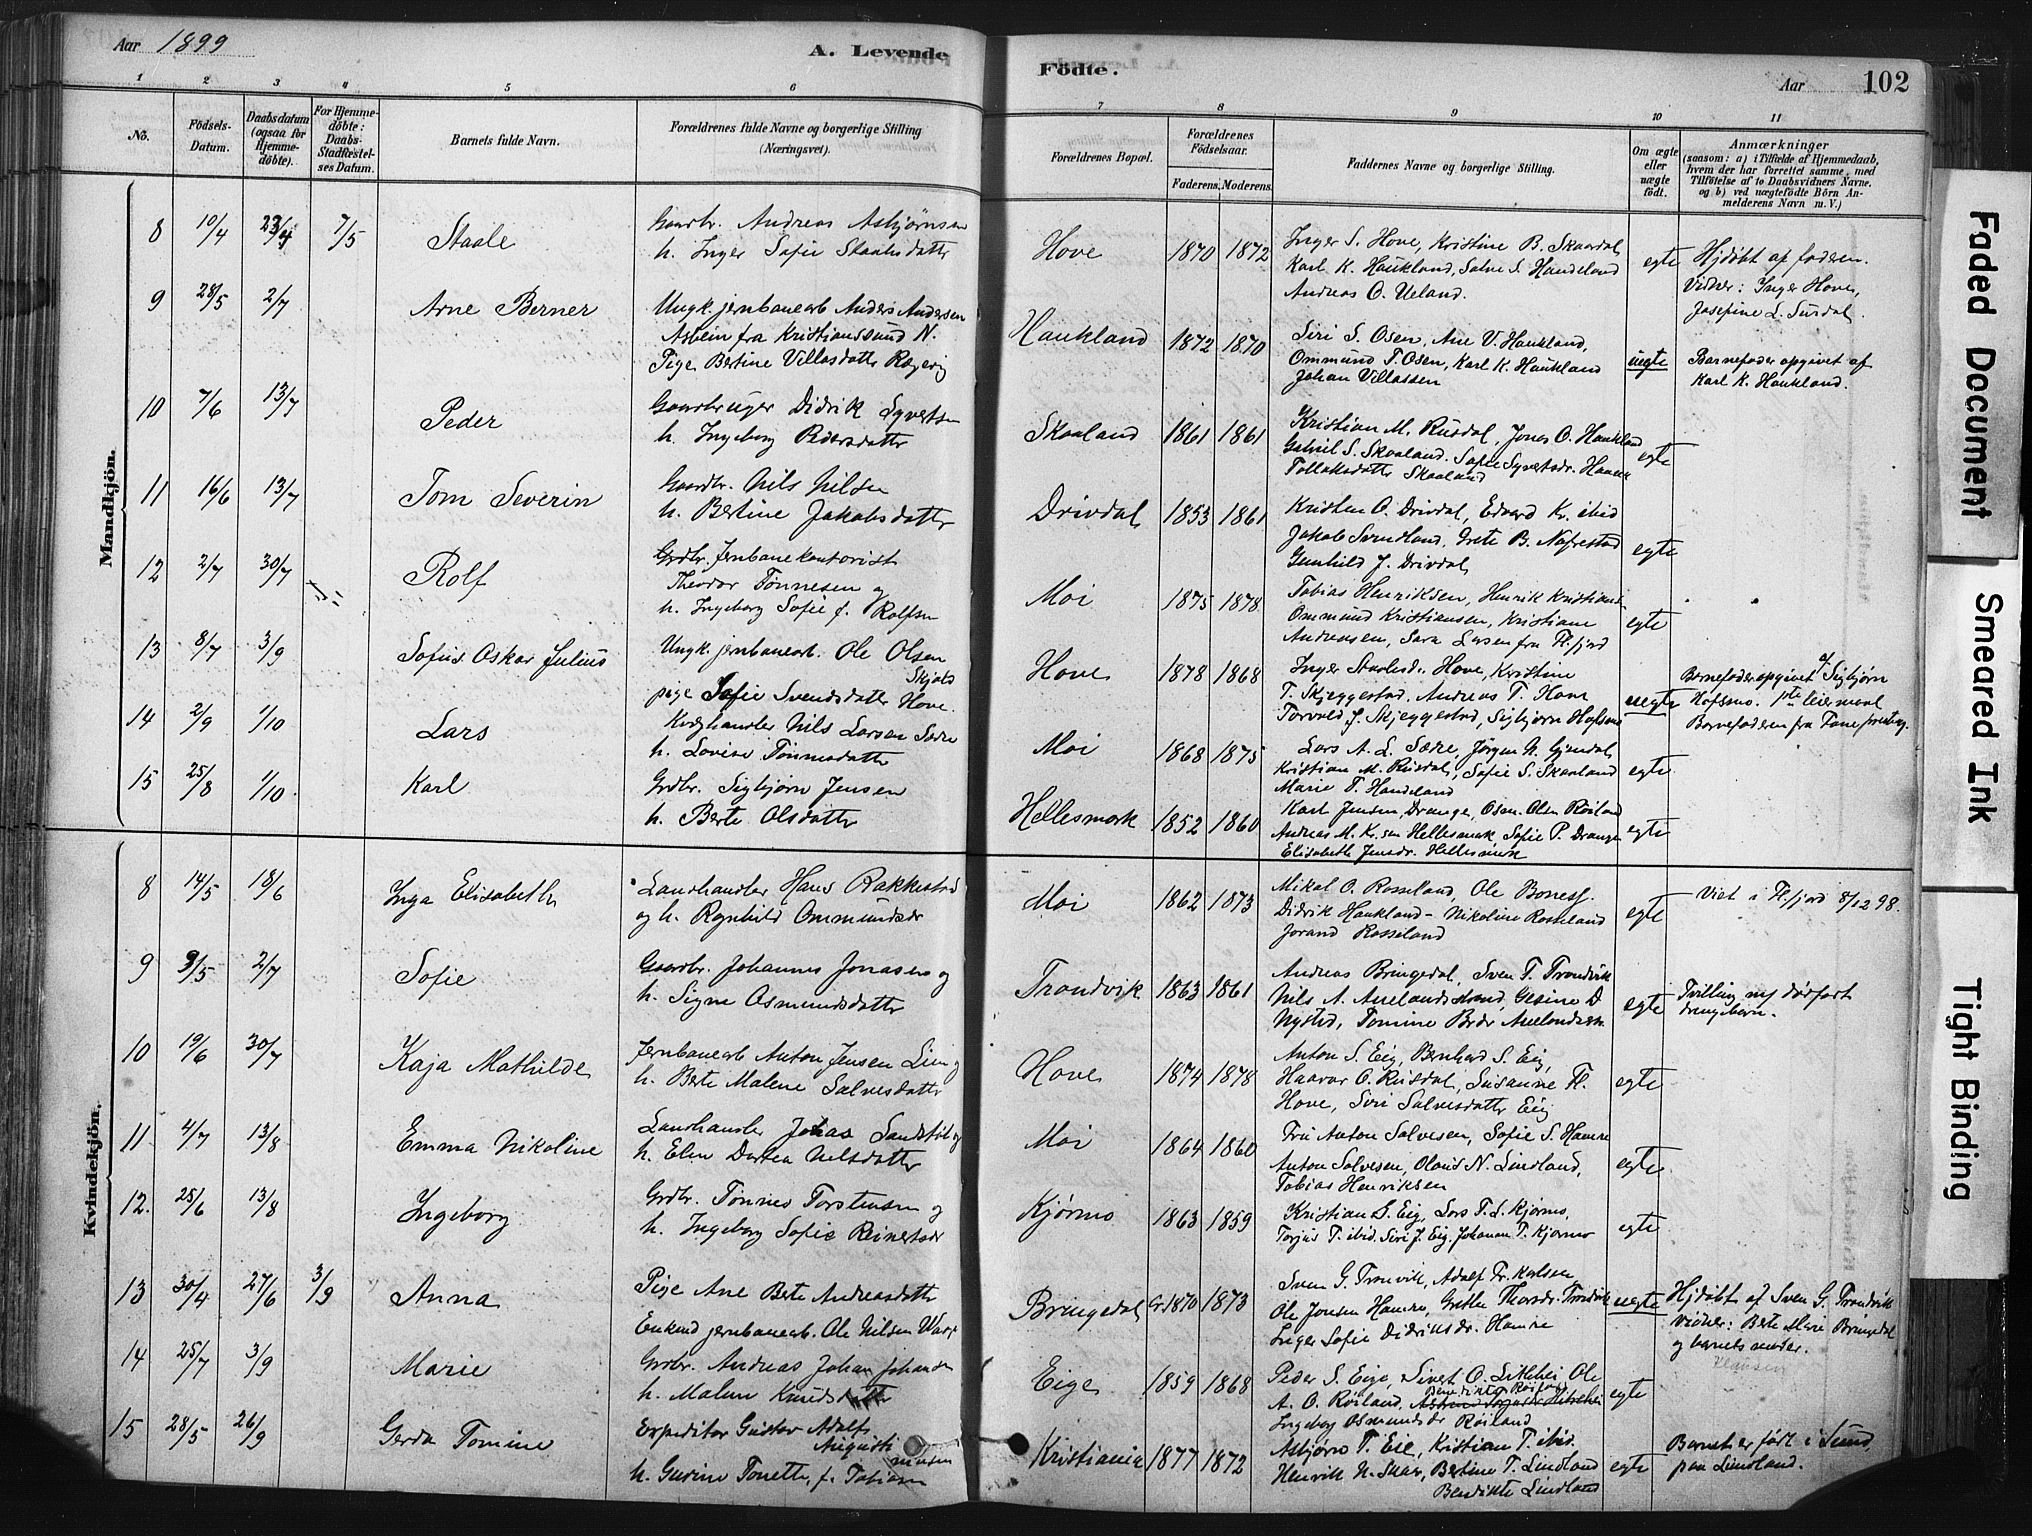 Aar 1899
A. Levende
Födte.
Aar
102
1 2 3 4 5 6 7 8 9 10 11
No.
Födsels-Datum.
Daabsdatum (ogsaa for Hjemme-döbte).
For Hjemme-döbte: Daabs-Stadfæstel-ses Datum.
Barnets fulde Navn.
Forældrenes fulde Navne og borgerlige Stilling (Næringsvei).
Forældrenes Bopæl.
Forældrenes Födselsaar.
Faderens. Moderens.
Faddernes Navne og borgerlige Stilling.
Om ægte eller uægte födt.
Anmærkninger
(saasom: a) i Tilfælde af Hjemmedaab, hvem der har forrettet samme, med Tilföielse af to Daabsvidners Navne. og b) ved uægtefödte Börn An-melderens Navn m. V.)
Mandkjön.
8 10/4 23/4 7/5 Staale
Gaardbr. Andreas Asbjørnsen
h. Inger Sofie Staalesdatter
Hove 1870 1872
Inger S. Hove, Kristine B. Skaardal
Karl K. Haukland, Salve S. Handeland
Andreas O. Ueland.
egte
Hjdøbt af faderen.
Vidner: Inger Hove,
Josefine L. Surdal.
9 28/5 2/7 Arne Berner
Ungk. jernbanearb Anders Andersen
Asbein fra Kristianssund N.
Pige Bertine Villasdatter
Haukland 1872 1870
Siri S. Osen, Ane V. Haukland,
Ommund T. Osen, Karl K. Haukland
Johan Villassen
uegte
Barnefader opgivet af
Karl K. Haukland.
10 7/6 13/7 Peder
Gaardbruger Didrik Syvertsen
h. Ingeborg Pedersdatter
Skaaland 1861 1861
Kristian M. Rusdal, Jonas O. Haukland
Gabriel S. Skaaland. Sofie Syvertsdr. Hamre
Tollaksdatter Skaaland
egte
11 16/6 13/7 Tom Severin
Gaardbr. Nils Nilsen
h. Bertine Jakobsdatter
Drivdal 1853 1861
Kristen O. Drivdal, Edvard Kr. ibid
Jakob Svendland, Grete B. Nafrestad
Gunhild J. Drivdal
egte
12 2/7 30/7 Rolf
Grdbr. Jernbanekontorist
Theodor Tønnesen og
h. Ingeborg Sofie f. Rolfsen
Moi 1875 1878
Tobias Henriksen, Henrik Kristians
Ommund Kristiansen, Kristiane
Andreasen, Sara Larsen fra Fl.fjord
egte
13 8/7 3/9 Sofus Oskar Julius
Ungk. jernbanearb. Ole Olsen
pige Sofie Svendsdatter Hove.
Hove 1878 1868
Inger Staalesd. Hove, Kristine
T. Skjeggestad. Andreas T. Hove
Torvald J. Skjeggestad, Sigbjørn Hofsmo
uegte
Barnefader opgivet af Sigbjørn
Hofsmo. 1ste leiermaal
Barnefaderen fra Fane prestegj.
14 2/9 1/10 Lars
Kodghandler Nils Larsen Sædre
h. Lovise Tønnesdatter
Moi 1868 1875
Lars A. L. Sædre, Jørgen N. Gjendal
Kristian M. Rusdal, Sofie S. Skaaland
Marie T. Handeland
egte
15 25/8 1/10 Karl
Grdbr. Sigbjørn Jensen
h. Berte Olsdatter
Hellesmark 1852 1860
Karl Jensen Drange, Osm. Olsen Røiland
Andreas M. K.sen Hellesmark Sofie P. Drange
Elisabeth Jensdr. Hellesmark
egte
Kvindekjön.
8 14/5 18/6 Inga Elisabeth
Landhandler Hans Rakkestad
og h. Ragnhild Ommundsdr
Moi 1862 1873
Mikal O. Rosseland, Ole Boness.
Didrik Haukland - Nikoline Rosseland
Jorand Rosseland
egte
Viet i Fl.fjord 8/12 98.
9 9/5 2/7 Sofie
Gaardbr. Johannes Jonassen og
h. Signe Osmundsdatter
Trondvik 1863 1861
Andreas Bringedal, Sven T. Trondvik
Nils A. Auelandstrand, Gesine D
Nysted, Tomine Brdr Auelandsstr.
egte
Tvilling m/ dødfødt
drengebarn.
10 19/6 30/7 Kaja Mathilde
Jernbanearb Anton Jensen Lien og
h. Berte Malene Salvesdatter
Hove 1874 1878
Anton S. Eig, Bernhard S. Eig,
Haavar O. Rusdal, Susanne Fl.
Hove, Siri Salvesdatter Eig
egte
11 4/7 13/8 Emma Nikoline
Landhandler Johas Sandstøl og
h. Elen Dortea Nilsdatter
Moi 1864 1860
Fru Anton Salvesen, Sofie S. Hamre
Anton Salvesen, Olaus N. Lindland,
Tobias Henriksen
egte
12. 25/6 13/8 Ingeborg
Grdbr. Tønnes Torstensen og
h. Ingeborg Sofie Reinertsdr
Kjørmo 1863 1859
Kristian S. Eig, Lars T. L. Kjørmo,
Torjus T. ibid. Siri J. Eig. Johanne T. Kjørmo
egte
13 30/4 27/6 3/9 Anna
Pige Ane Berte Andreasdatter
Enkemd jernbanearb. Ole Nilsen
Bringedal Cr. 1870 1873
Sven G. Tronvik, Adolf Fr. Karlsen
Ole Jonsen Hamre, Grethe Thorsdr. Trondvik
Inger Sofie Didriksdr. Hamre
uegte
Hjdøbt af Sven G. Trondvik
Vidner: Berte Marie Bringedal
og barnets moder.
Klausen
14 25/7 3/9 Marie
Grdbr. Andreas Johan Johansen
h. Malene Knudsdatter
Eige 1859 1868
Peder S. Eige, Sivert O. Litlehei Ole
A. O. Røiland, Benedikte Røiland
Ingeborg Osmundsdr Røiland
egte
15 28/5 26/9 Gerda Tomine
Expeditør Gustav Adolf
Augustinussen
h. Gurine Tonette, f. Tobiasen
Kristiania 1877 1872
Asbjørn T. Eie, Kristian T. ibid
Henrik N. Skaar, Bertine T. Lindland
Benedikte Lindland
egte
Barnet er født i Lund,
paa Lindland.
Faded Document
Smeared Ink
Tight Binding